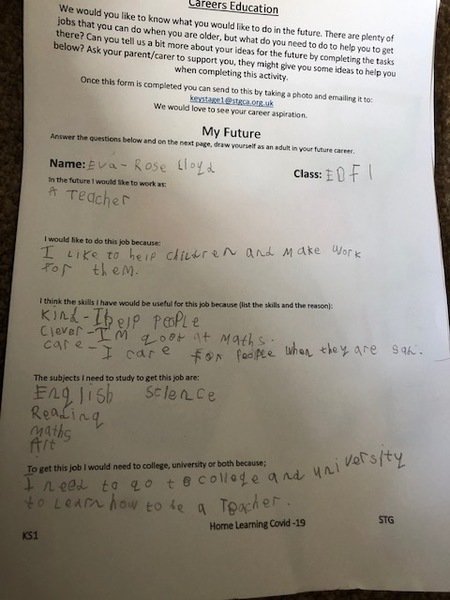 Careers Education
We would you like to know what you would like to do in the future. There are plenty of
jobs that you can do when you are older, but what do you need to do to help you to get
there? Can you tell us a bit more about your ideas for the future by completing the tasks
below? Ask your parent/carer to support you, they might give you some ideas to help you
when completing this activity.
Once this form is completed you can send to this by taking a photo and emailing it to:
keystage1@stgca.org.uk
We would love to see your career aspiration.
My Future
Answer the questions below and on the next page, draw yourself as an adult in your future career.
Name: Eva-Rose Lloyd Class: EDF1
In the future I would like to work as:
A Teacher
I would like to do this job because:
I Like to help children and make work
for them.
I think the skills I have would be useful for this job because (list the skills and the reason):
Kind - I help people
Clever - I'm good at maths.
care - I care for people when they are sah.
The subjects I need to study to get this job are:
English Science
Reading
maths
Art
To get this job I would need to college, university or both because;
I need to go to college and university
to Learn how to be a Teacher.
KS1 Home Learning Covid -19 STG